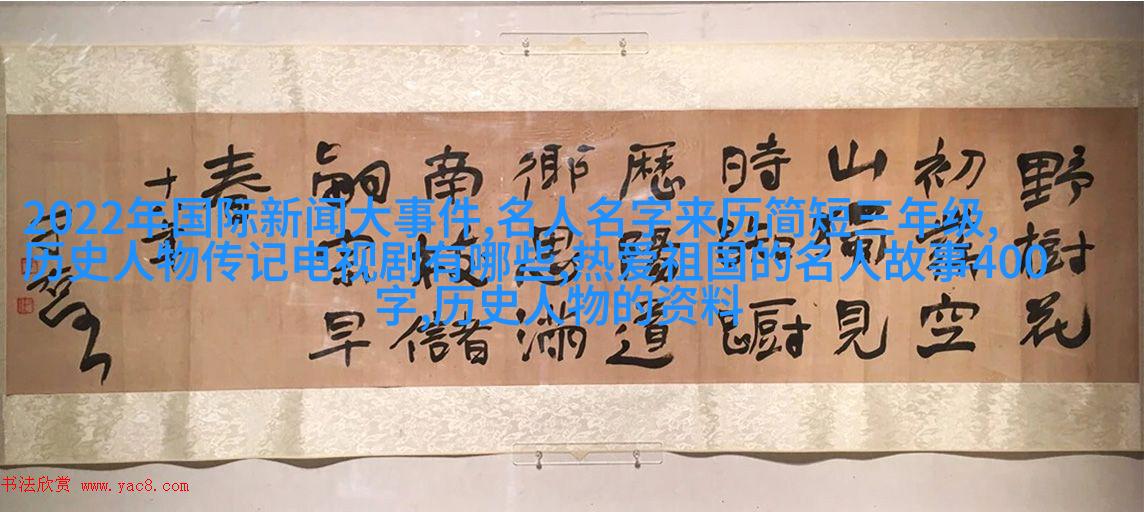 野樹花
初發空
山獨見
時踟躕
歷陽道
鄉思滿
南枝儲
嗣宗早
春
2022年国际新闻大事件,名人名字来历简短三年级,
历史人物传记电视剧有哪些,热爱祖国的名人故事400
字,历史人物的资料
书法欣赏 www.yac8.com